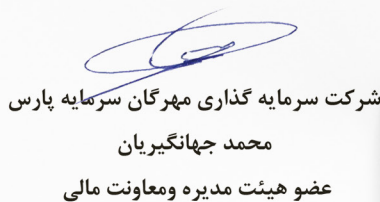 شرکت سرمایه گذاری مهرگان سرمایه پارس
محمد جهانگیریان
عضو هیئت مدیره ومعاونت مالی